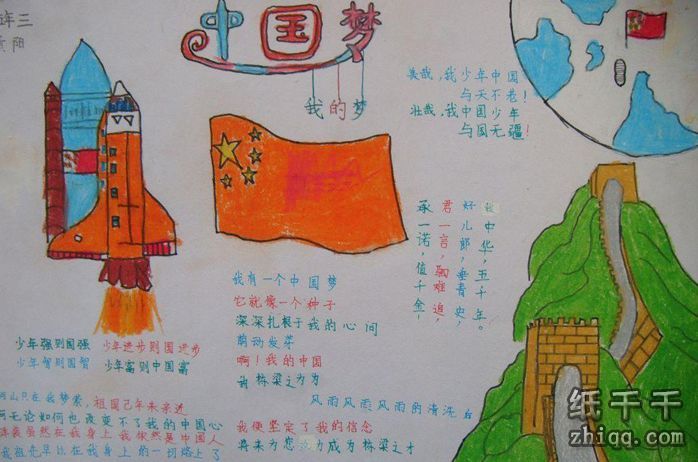 年三
贵阳
中国梦
我的梦
美哉，我少年中国
与天不老！
壮哉，我中国少年
与国无疆！
中华，五千年。
好儿郎，垂青史，
君一言，驷难追，
承一诺，值千金，
我有一个中国梦
它就像一个种子
深深扎根于我的心间
萌动发芽
啊！我的中国
栋梁之为为
少年强则国强 少年进步则国进步
少年智则国智 少年富则中国富
风雨风雨风雨的清洗后
山只在我梦萦，祖国己年未亲近
无论如何也改变不了我的中国心
虽然在我身上我依然是中国人
我祖先早让在我身上的一切烙上了
我便坚定了我的信念
将来为您成为栋梁之才
纸千千
zhiqq.com